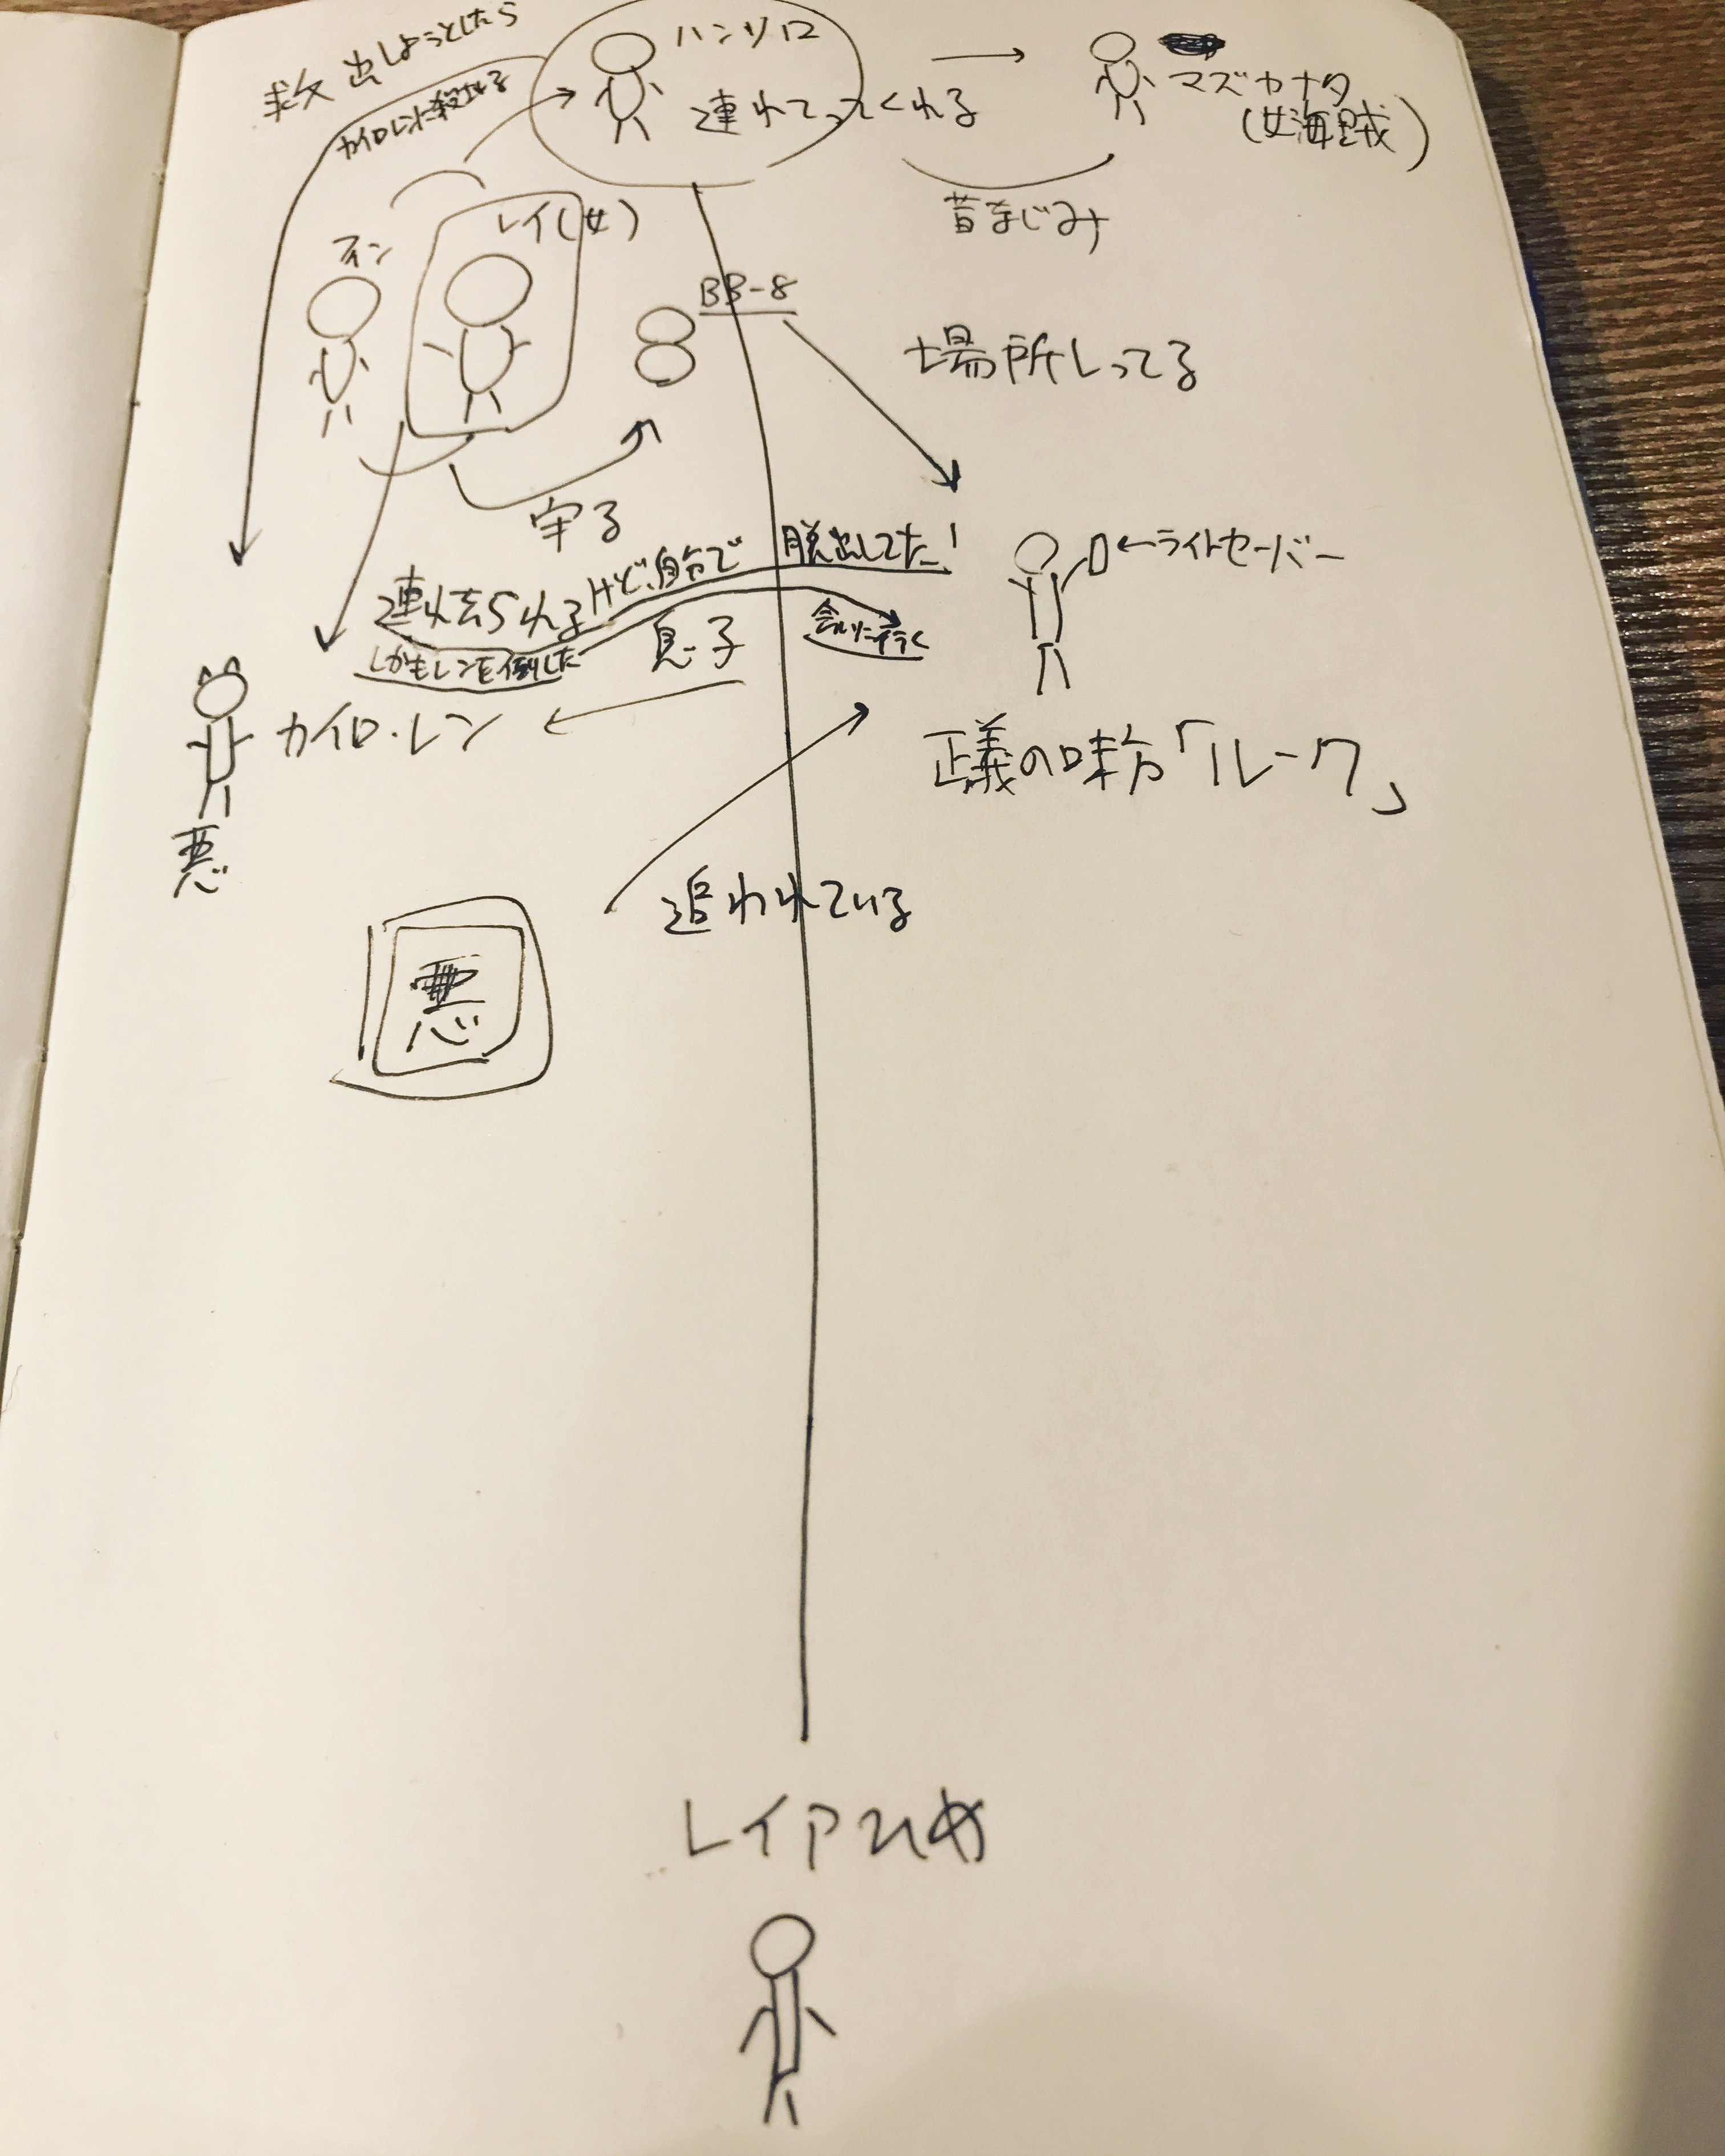 救出しようとしたら
カイロレンに殺される
ハンソロ
連れてってくれる
マズカナタ
(女海賊)
昔なじみ
フィン
レイ(女)
BB-8
場所しってる
守る
連れ去られるけど、自分で脱出してた!
しかもレンを倒した
会いに行く
息子
←ライトセーバー
カイロ・レン
悪
正義の味方「ルーク」
追われている
悪
レイアひめ